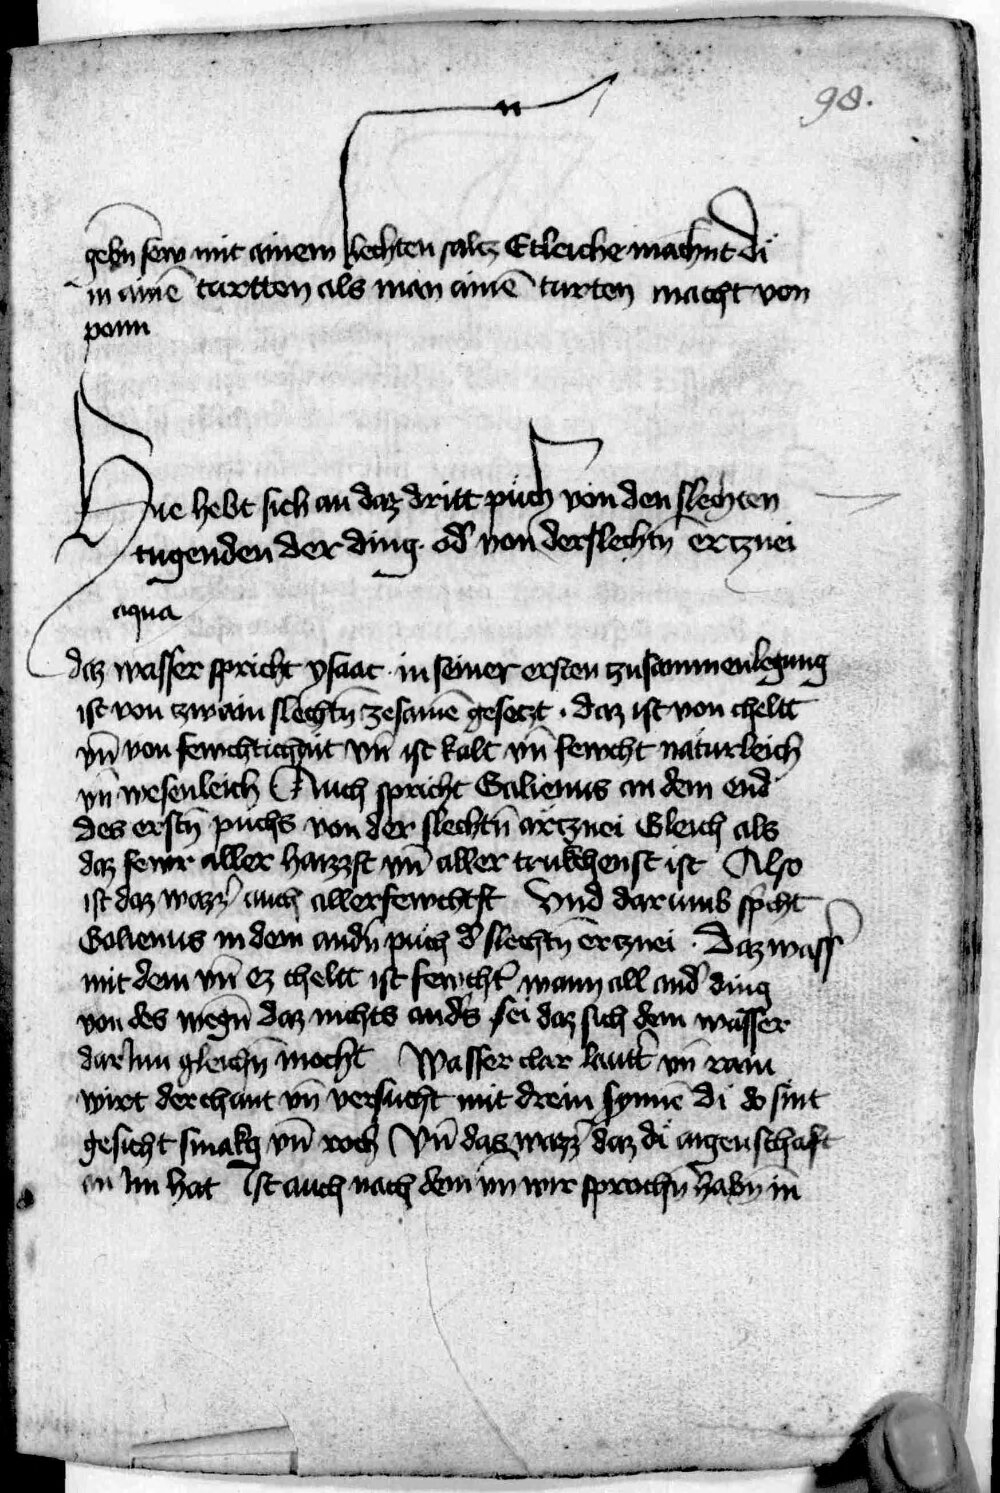 98.
gebn̄ sew mit ainem slechten saltz Etleiche machnt di
in aimē tartten als man aimē turten macht von
ponn
Hie hebt sich an daz dritt pùch von den slechten
tugenden der ding · od̕ von der slechtn̄ ertznei
aqua
daz wasser spricht ysaac · in seiner ersten zusammenlegung
ist von zwain slechtn̄ zesamē gesetzt · daz ist von cheltt
vn̄ von fewchtichait vn̄ ist kalt vn̄ fewcht natúrleich
vn̄ wesenleich Auch spricht Galienus an dem end
des erstn̄ pùchs von der slechtn̄ ärtznei Gleich als
daz fewr aller haizzst vn̄ aller trukchenst ist Also
ist daz wazz̕ auch allerfewchtst Vnd darumb spricht
Galienus in dem andn̄ pùch d̕ slechtn̄ ertznei · Daz wass̕
mit dem vn̄ ez cheltt ist fewcht̕ wann all and̕ ding
von des wegn̄ daz nichts and̕s sei daz sich dem wasser
dar Inn gleichn̄ mocht Wasser clar lautt̕ vn̄ rain
wirt derchant vn̄ versucht mit drein synnē di do sint
gesicht smakg vn̄ roch Vn̄ das wazz̕ daz di aigenschaft
an Im hat Ist auch nach dem vn wir sprochn̄ habn̄ in